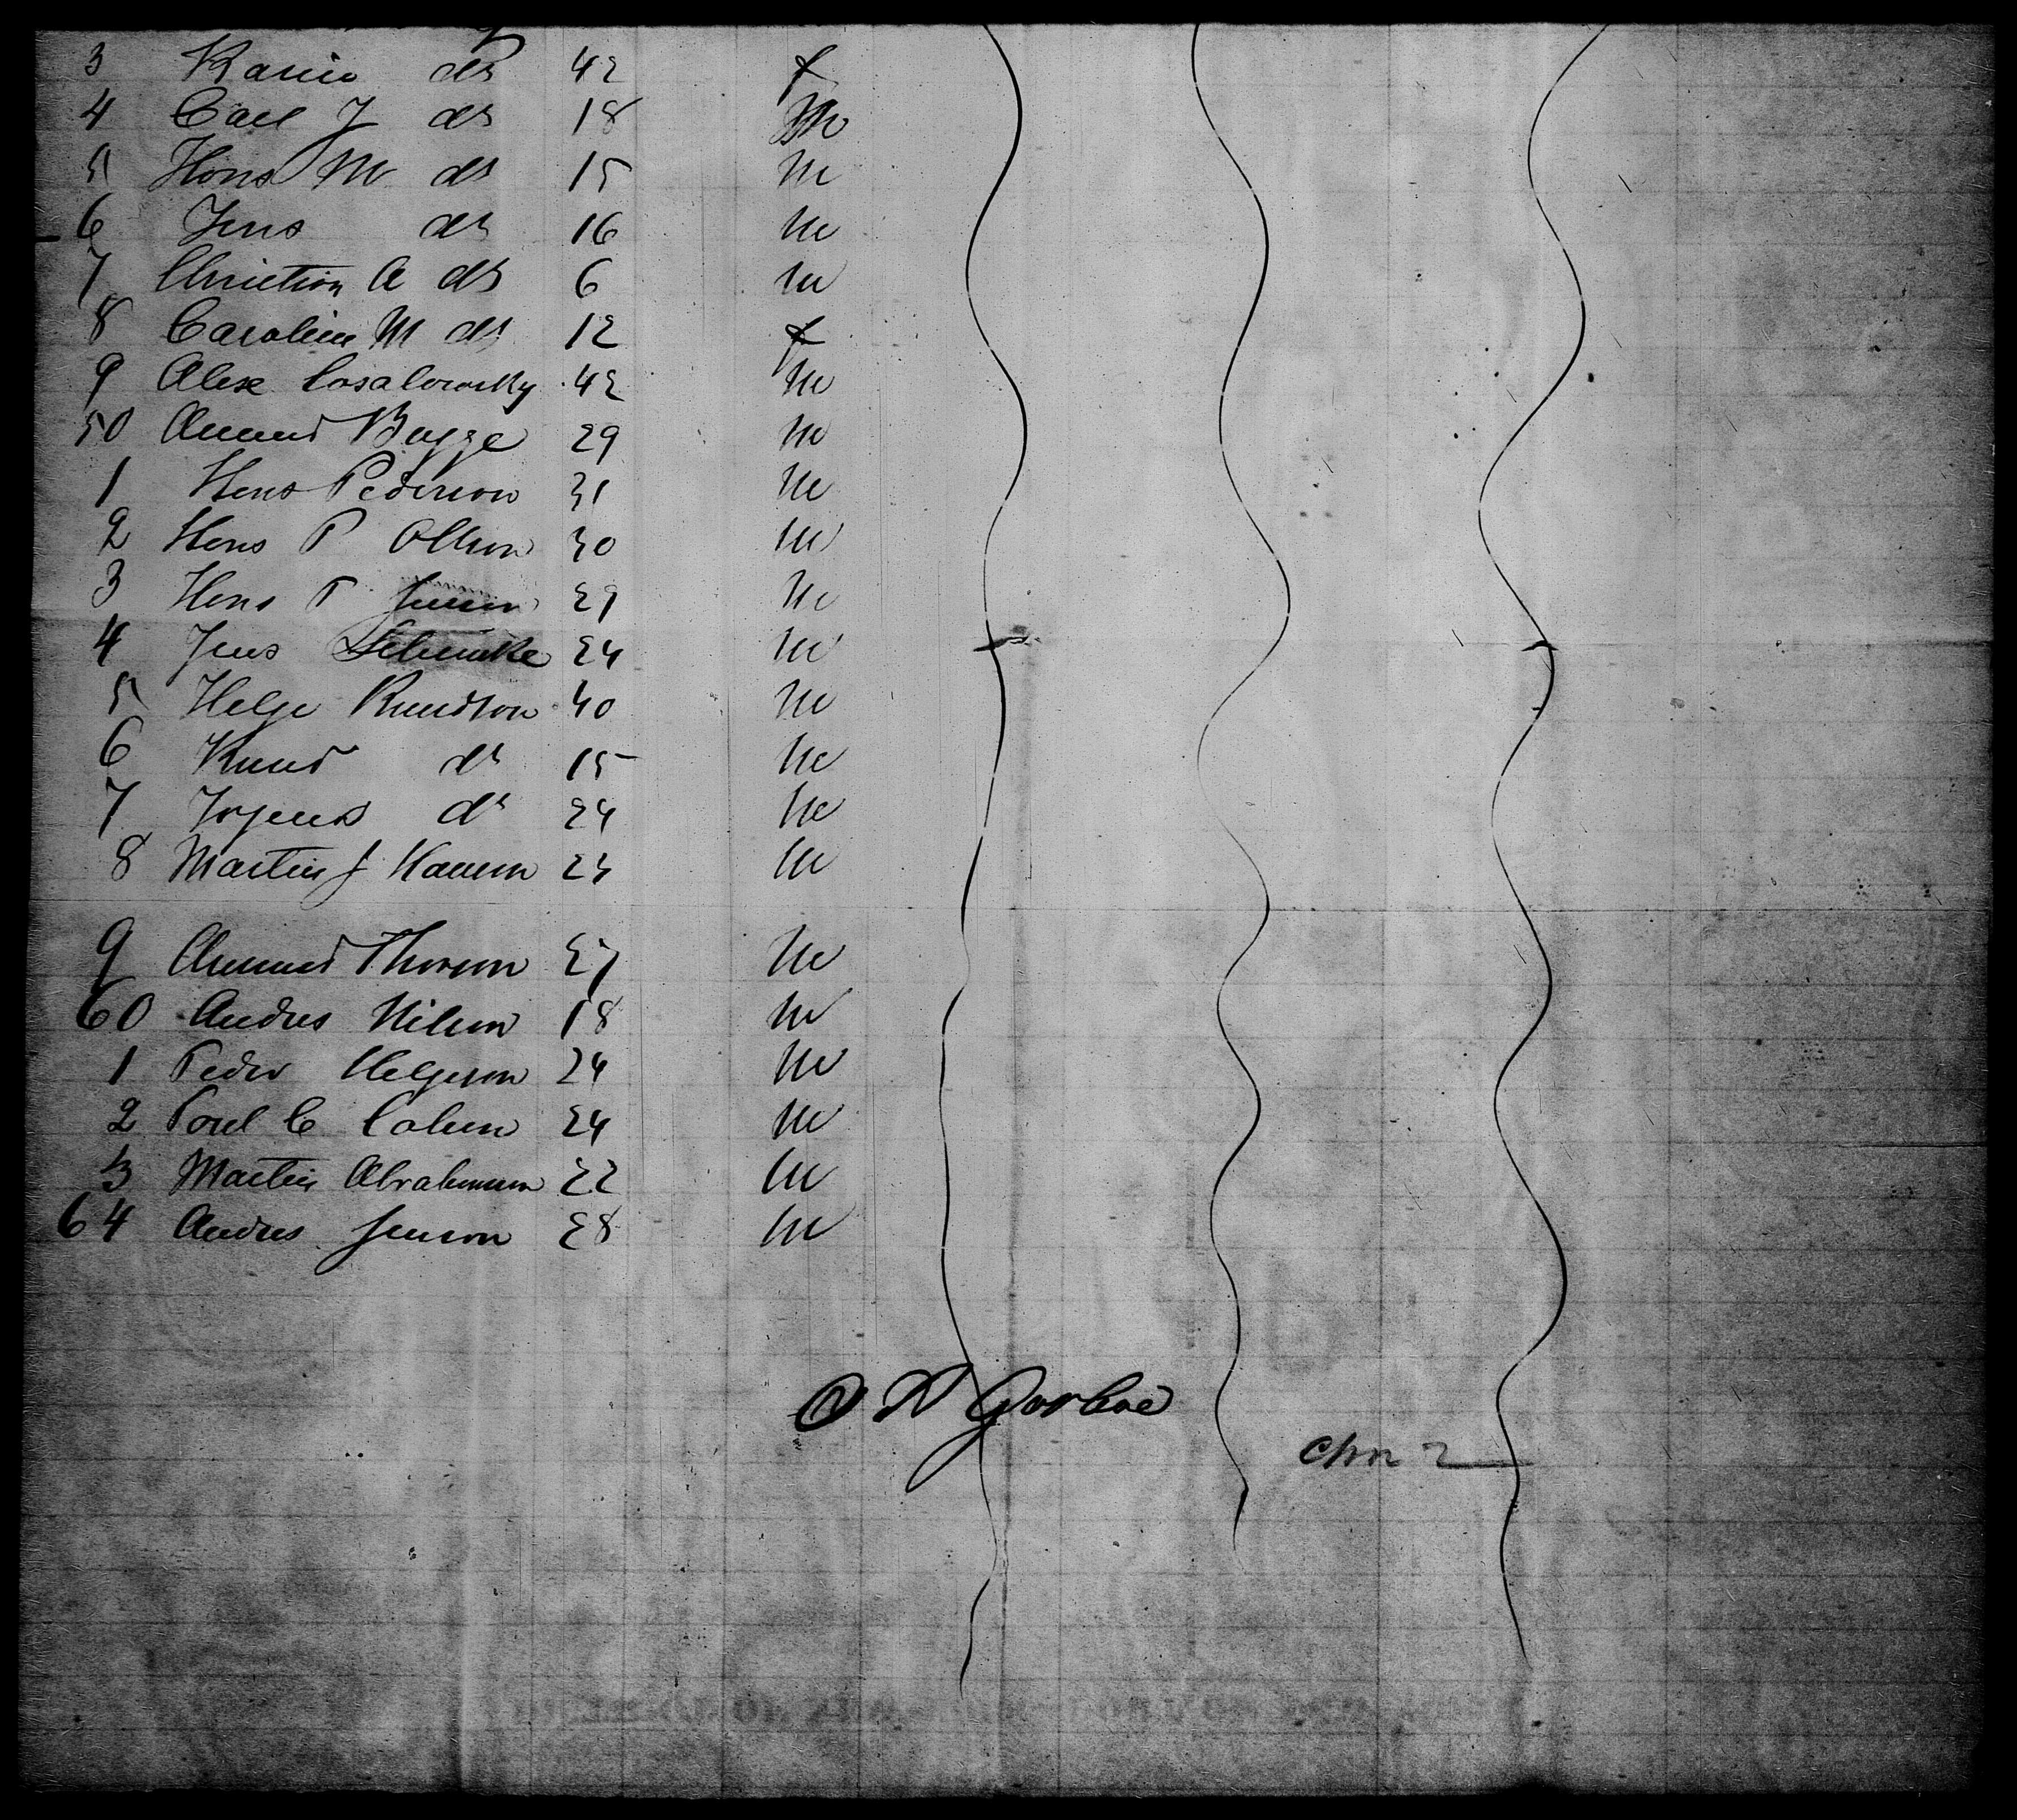 3 Karin do 42 f
4 Carl J do 18 m
5 Hans M do 15 m
6 Jens do 16 m
7 Christian A do 6 m
8 Caroline M do 12 f
9 Alex 42 m
50 Amund Bugge 29 m
1 Hans Pederson 31 m
2 Hans P Olson 30 m
3 Hans P Jenson 29 m
4 Jens 24 m
5 Helge Knudson 40 m
6 Knud do 15 m
7 do 24 m
8 Martin J Hanson m
9 Amund Thorson 27 m
60 Andres Nilson 18 m
1 Peder Helgeson 24 m
2 Poul C 24 m
3 Martin Abrahamson 22 m
64 Andres Jenson 28 m